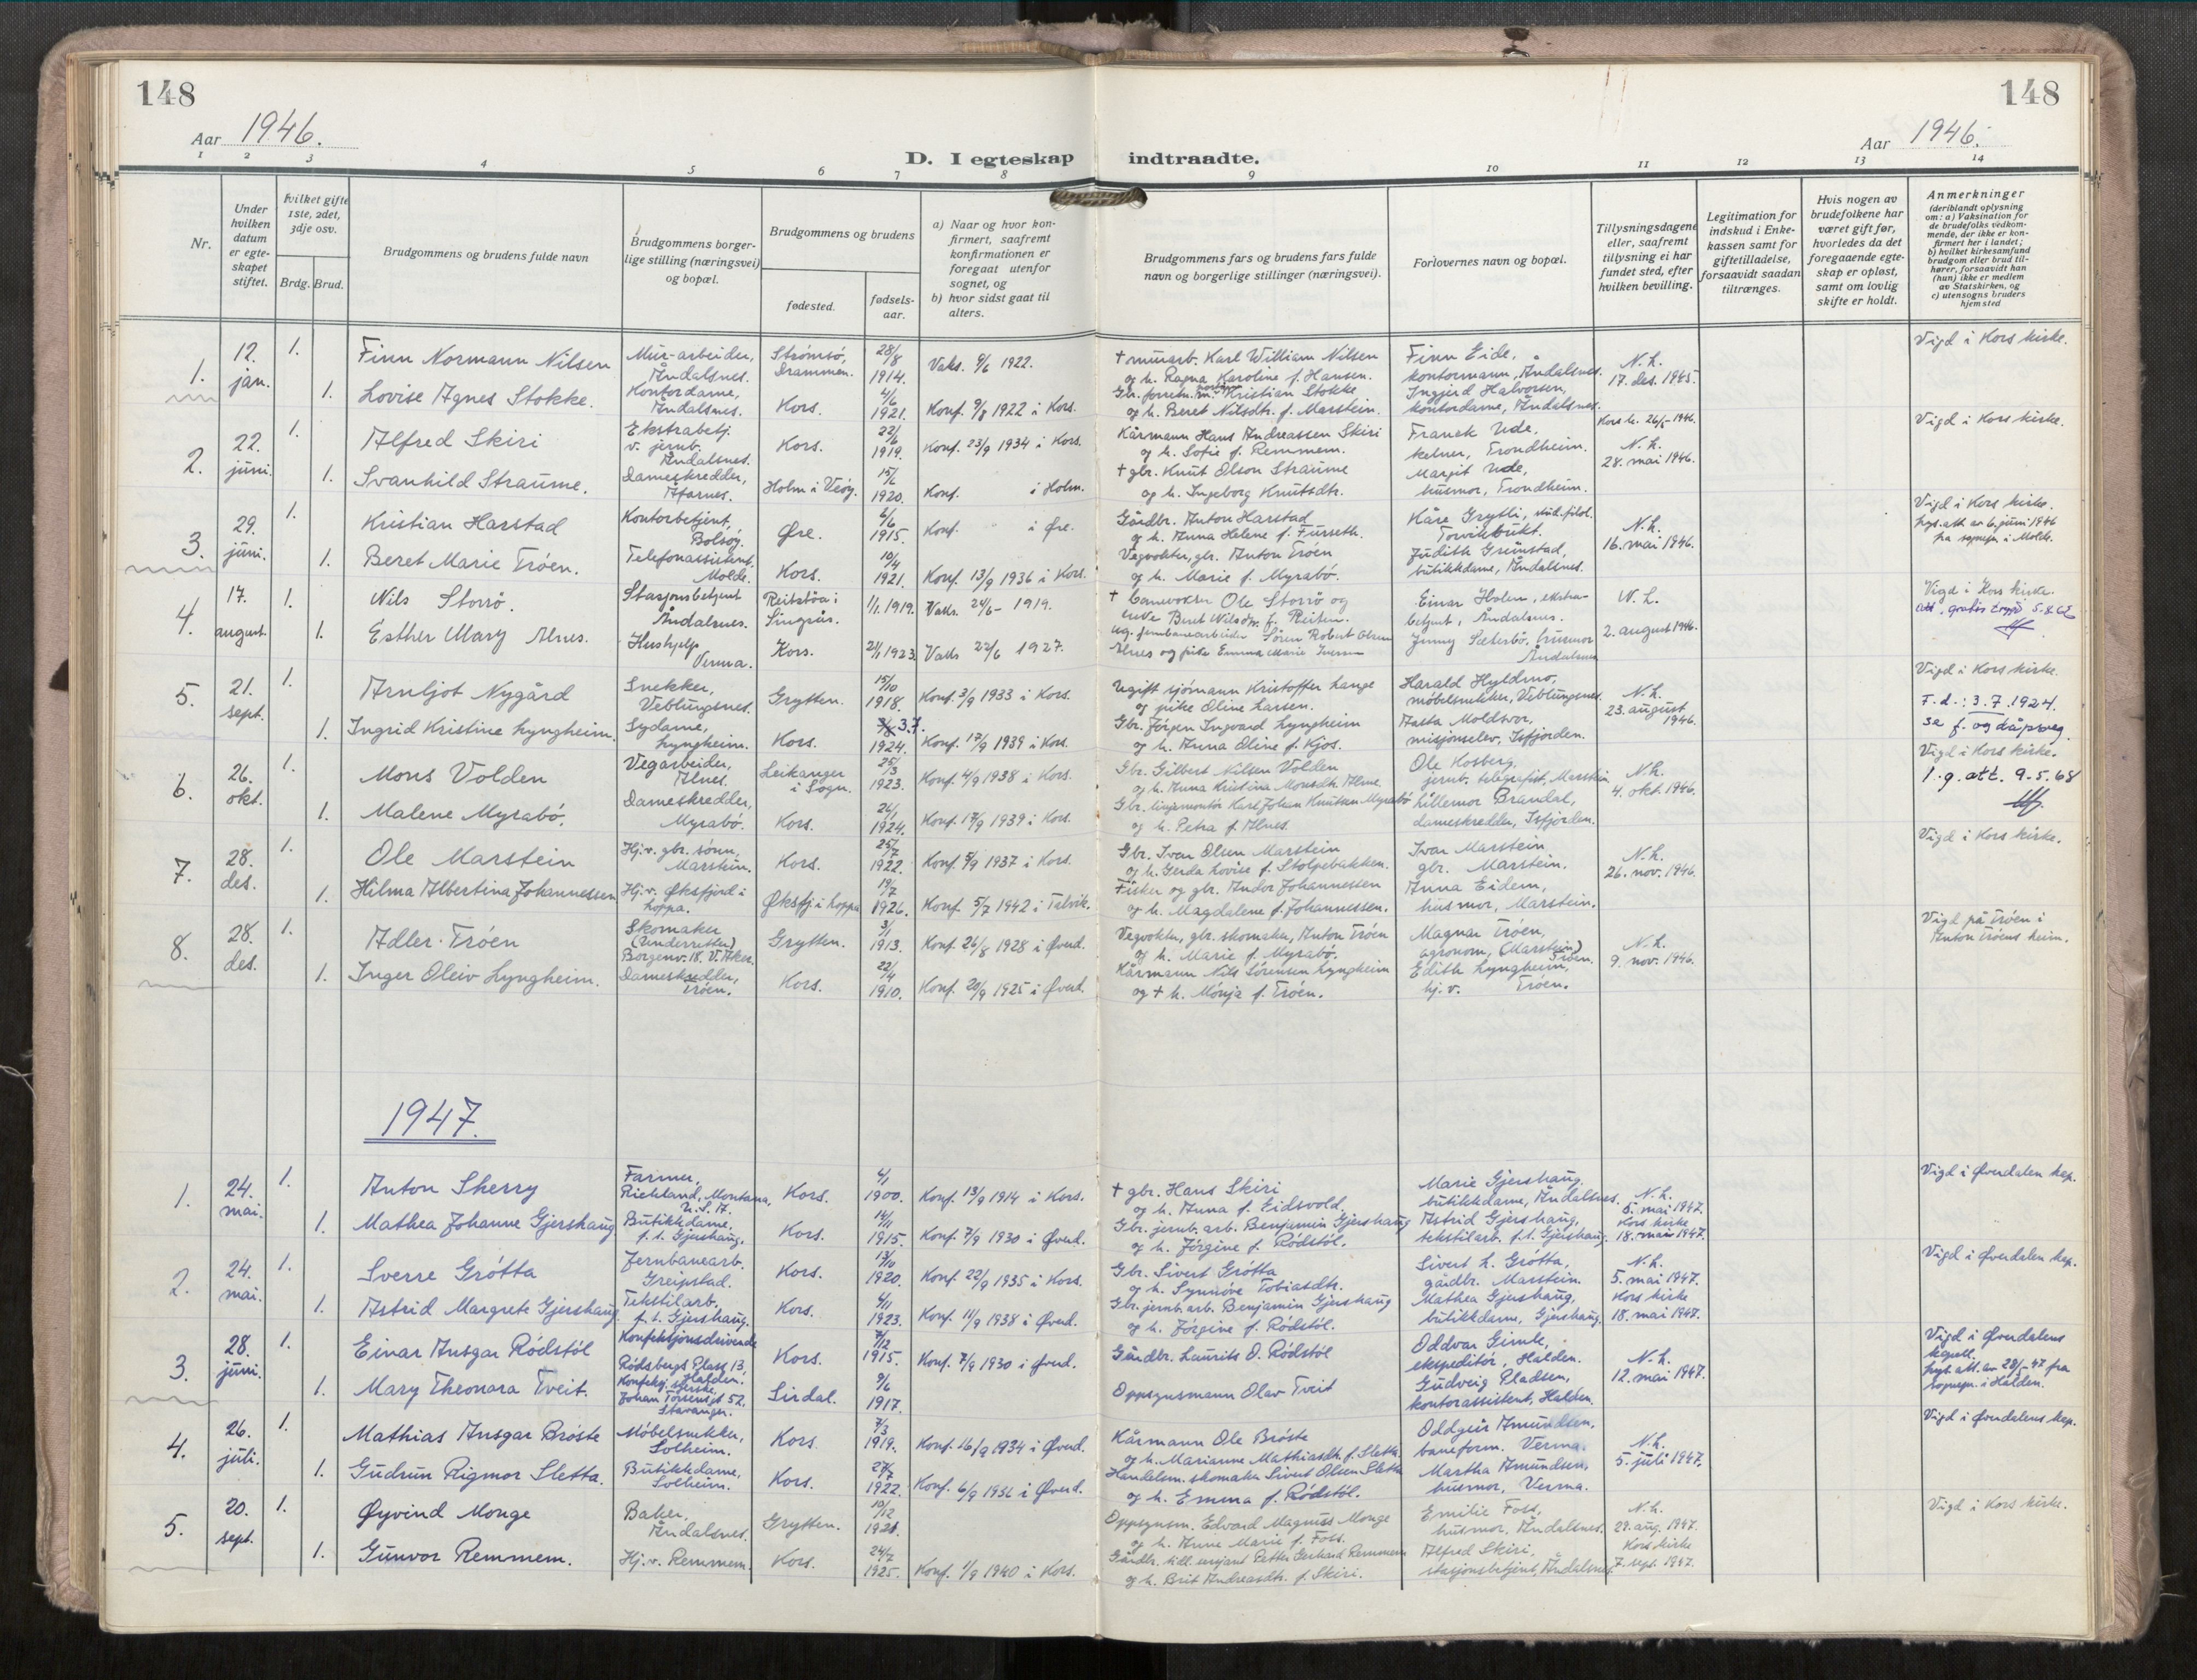 148
148
Aar 1946.
Aar 1946.
D. I egteskap indtraadte.
1 2 3 4 5 6 7 8 9 10 11 12 13 14
Nr.
Under hvilken datum er egteskapet stiftet.
Hvilket gifte 1ste, 2det, 3dje osv.
Brdg. Brud.
Brudgommens og brudens fulde navn
Brudgommens borgerlige stilling (næringsvei) og bopæl.
Brudgommens og brudens
fødested.
fødselsaar.
a) Naar og hvor konfirmert, saafremt konfirmationen er foregaat utenfor sognet, og
b) hvor sidst gaat til alters.
Brudgommens fars og brudens fars fulde navn og borgerlige stillinger (næringsvei).
Forlovernes navn og bopæl.
Tillysningsdagene eller, saafremt tillysning ei har fundet sted, efter hvilken bevilling.
Legitimation for indskud i Enkekassen samt for giftetilladelse, forsaavidt saadan tiltrænges.
Hvis nogen av brudefolkene har været gift før, hvorledes da det foregaaende egteskap er opløst, samt om lovlig skifte er holdt.
Anmerkninger
(deriblandt oplysning om: a) Vaksination for de brudefolks vedkommende, der ikke er konfirmert her i landet; b) hvilket kirkesamfund brudgom eller brud tilhører, forsaavidt han (hun) ikke er medlem av Statskirken, og c) utensogns bruders hjemsted
1. 12. jan. 1. Finn Normann Nilsen Mur-arbeider, Åndalsnes. Strømsø, Drammen. 28/8 1914. Vaks. 9/6 1922. † murarb. Karl William Nilsen og h. Ragna Karoline f. Hansen. Finn Eide, kontormann, Åndalsnes. N.h. 17. des. 1945. Vigd i Kors kirke.
1. Lovise Agnes Stokke. Kontordame, Åndalsnes. Kors. 4/6 1921. Kristian Stokke og h. Beret Nilsdtr. f. Marstein. Ingjerd Halvorsen, kontordame, Åndalsnes.
2. 22. juni. 1. Alfred Skiri Ekstrabetj. v. jernb. Åndalsnes. Kors. 22/6 1919. Konf. 23/9 1934 i Kors. Kårmann Hans Andreassen Skiri og h. Sofie f. Remmem. Franck Ude, kelner, Trondheim. N.h. 28. mai 1946. Vigd i Kors kirke.
1. Svanhild Straume. Dameskredder, Åfarnes. Holm i Veøy. 15/6 1920. Konf. i Holm. † gbr. Knut Olson Straume og h. Ingeborg Knutsdtr. Margit Ude, husmor, Trondheim.
3. 29. juni. 1. Kristian Harstad Kontorbetjent, Bolsøy. Øre. 6/6 1915. Konf. i Øre. Gårdbr. Anton Harstad og h. Anna Helene f. Furseth. Kåre Grytli, stud. filol. Torvikbukt. N.h. 16. mai 1946. Vigd i Kors kirke. av 6. juni 1946 fra sognepr. i Molde.
1. Beret Marie Trøen. Telefonassistent, Molde. Kors. 10/4 1921. Konf. 13/9 1936 i Kors. Vegvokter, gbr. Anton Trøen og h. Marie f. Myrabø. Judith Grønstad, butikkdame, Åndalsnes.
4. 17. august. 1. Nils Storrø. Stasjonsbetjent Åndalsnes. Singsås. 1/1. 1919. Vaks. 24/6 - 1919. † banevokter Ole Storrø og Einar Holen, ekstrabetjent, Åndalsnes. N.h. 2. august 1946. Vigd i Kors kirke.
1. Esther Mary Alnes. Hushjelp Verma. Kors. 21/1 1923. Vaks 22/6 1927. Søren Robert Olsen Alnes og pike Emma Marie Jenny Sæterbø, husmor Åndalsnes
5. 21. sept. 1. Arnljot Nygård Snekker, Veblungsnes. Grytten. 15/10 1918. Konf. 3/9 1933 i Kors. Ugift sjømann Kristoffer Lange og pike Oline Larsen. Harald Hyldmo, møbelsnekker, Veblungsnes. N.h. 23. august 1946. Vigd i Kors kirke.
1. Ingrid Kristine Lyngheim. Sydame, Lyngheim. Kors. 3.7. 1924. Konf. 17/9 1939 i Kors. Gbr. Jørgen Ingvard Lyngheim og h. Anna Oline f. Kjos. Aasta Moldsvor, misjonselev, Isfjorden. F.d.: 3.7.1924. se f. og dåpsreg.
6. 26. okt. 1. Mons Volden Vegarbeider, Alnes. Leikanger i Sogn. 25/3 1923. Konf. 4/9 1938 i Kors. Gbr. Gilbert Nilsen Volden og h. Anna Kristina Monsdtr. Alnes. Ole Kosberg, jernb. telegrafist, Marstein N.h. 4. okt. 1946. Vigd i Kors kirke. 1.g. att. 9.5.68
1. Malene Myrabø. Dameskredder, Myrabø. Kors. 26/1 1924. Konf. 17/9 1939 i Kors. Gbr. linjemontør Karl Johan Knutsen Myrabø og h. Petra f. Alnes. Lillemor Brandal, dameskredder, Isfjorden.
7. 28. des. 1. Ole Marstein Hj.v. gbr. sønn, Marstein. Kors. 25/7 1922. Konf. 5/9 1937 i Kors. Gbr. Ivar Olsen Marstein og h. Gerda Lovise f. Stolpebakken. Ivar Marstein gbr. Marstein. N.h. 26. nov. 1946. Vigd i Kors kirke.
1. Hilma Albertina Johannessen Hj.v. Øksfjord i Loppa. Øksfj. i Loppa 19/7 1926. Konf. 5/7 1942 i Talvik. Fisker og gbr. Andor Johannessen og h. Magdalene f. Johannessen. Anna Eidem, husmor, Marstein.
8. 28. des. 1. Adler Trøen Skomaker (Underretten) Borgenv. 18. V. Aker. Grytten. 3/1 1913. Konf. 26/8 1928 i Øverd. Vegvokter, gbr. skomaker, Anton Trøen og h. Marie f. Myrabø. Magnar Trøen, agronom, (Marstein) Trøen. N.h. 9. nov. 1946. Vigd på Trøen i Anton Trøens heim.
1. Inger Oleiv Lyngheim. Dameskredder, Trøen. Kors. 22/4 1910. Konf. 20/9 1925 i Øverd. Kårmann Nils Sørensen Lyngheim og † h. Mønja f. Trøen. Edith Lyngheim, hj.v. Trøen.
1947.
1. 24. mai. 1. Anton Sherry Farmer, Richland, Montana, U.S.A. Kors. 4/1 1900. Konf. 13/9 1914 i Kors. † gbr. Hans Skiri og h. Anna f. Eidsvold. Marie Gjershaug, butikkdame, Åndalsnes. N.h. 5. mai 1947. Kors kirke 18. mai 1947. Vigd i Øverdalen kap.
1. Mathea Johanne Gjershaug Butikkdame, f.t. Gjershaug. Kors. 14/11 1915. Konf. 7/9 1930 i Øverd. Gbr. jernb. arb. Benjamin Gjershaug og h. Jørgine f. Rødstøl. Astrid Gjershaug, tekstilarb. f.t. Gjershaug.
2. 24. mai. 1. Sverre Grøtta Jernbanearb. Greipstad. Kors. 13/10 1920. Konf. 22/9 1935 i Kors. Gbr. Sivert Grøtta og h. Synnøve Tobiasdtr. Sivert L. Grøtta, gårdbr. Marstein. N.h. 5. mai 1947. Kors kirke 18. mai 1947. Vigd i Øverdalen kap.
1. Astrid Margrete Gjershaug. Tekstilarb. f.t. Gjershaug. Kors. 4/11 1923. Konf. 11/9 1938 i Øverd. Gbr. jernb. arb. Benjamin Gjershaug og h. Jørgine f. Rødstøl. Mathea Gjershaug, butikkdame, Gjershaug.
3. 28. juni. 1. Einar Ansgar Rødstøl Konfeksjonsdrivende Rødsbergs Plass 13, Halden. Kors. 7/12 1915. Konf. 7/9 1930 i Øverd. Gårdbr. Laurits O. Rødstøl Oddvar Gimle, ekspeditør, Halden. N.h. 12. mai 1947. Vigd i Øverdalens kapell. fra sognepr. i Halden.
1. Mary Theonora Tveit. Stavanger. Sirdal. 9/6 1917. Oppsynsmann Olav Tveit Gudveig Pladsen, kontorassistent, Halden.
4. 26. juli. 1. Mathias Ansgar Brøste Møbelsnekker, Solheim. Kors. 7/3 1919. Konf. 16/9 1934 i Øverd. Kårmann Ole Brøste og h. Marianne Mathiasdtr. f. Sletta. Oddgeir Amundsen, baneform. Verma. N.h. 5. juli 1947. Vigd i Øverdalens kap.
1. Gudrun Rigmor Sletta. Butikkdame, Solheim. Kors. 27/7 1922. Konf. 6/9 1936 i Øverd. Handelsm. skomaker Sivert Olsen Sletta og h. Emma f. Rødstøl. Martha Amundsen, husmor, Verma.
5. 20. sept. 1. Øyvind Monge Baker, Åndalsnes. Grytten. 10/12 1921. Oppsynsm. Edvard Magnus Monge og h. Anne Marie f. Foss. Emilie Foss, husmor, Åndalsnes. N.h. 29. aug. 1947. Kors kirke 7. sept. 1947. Vigd i Kors kirke.
1. Gunvor Remmem. Hj.v. Remmem. Kors. 24/7 1925. Konf. 1/9 1940 i Kors. Petter Gerhard Remmem og h. Brit Andreasdtr. f. Skiri. Alfred Skiri, stasjonsbetjent, Åndalsnes.